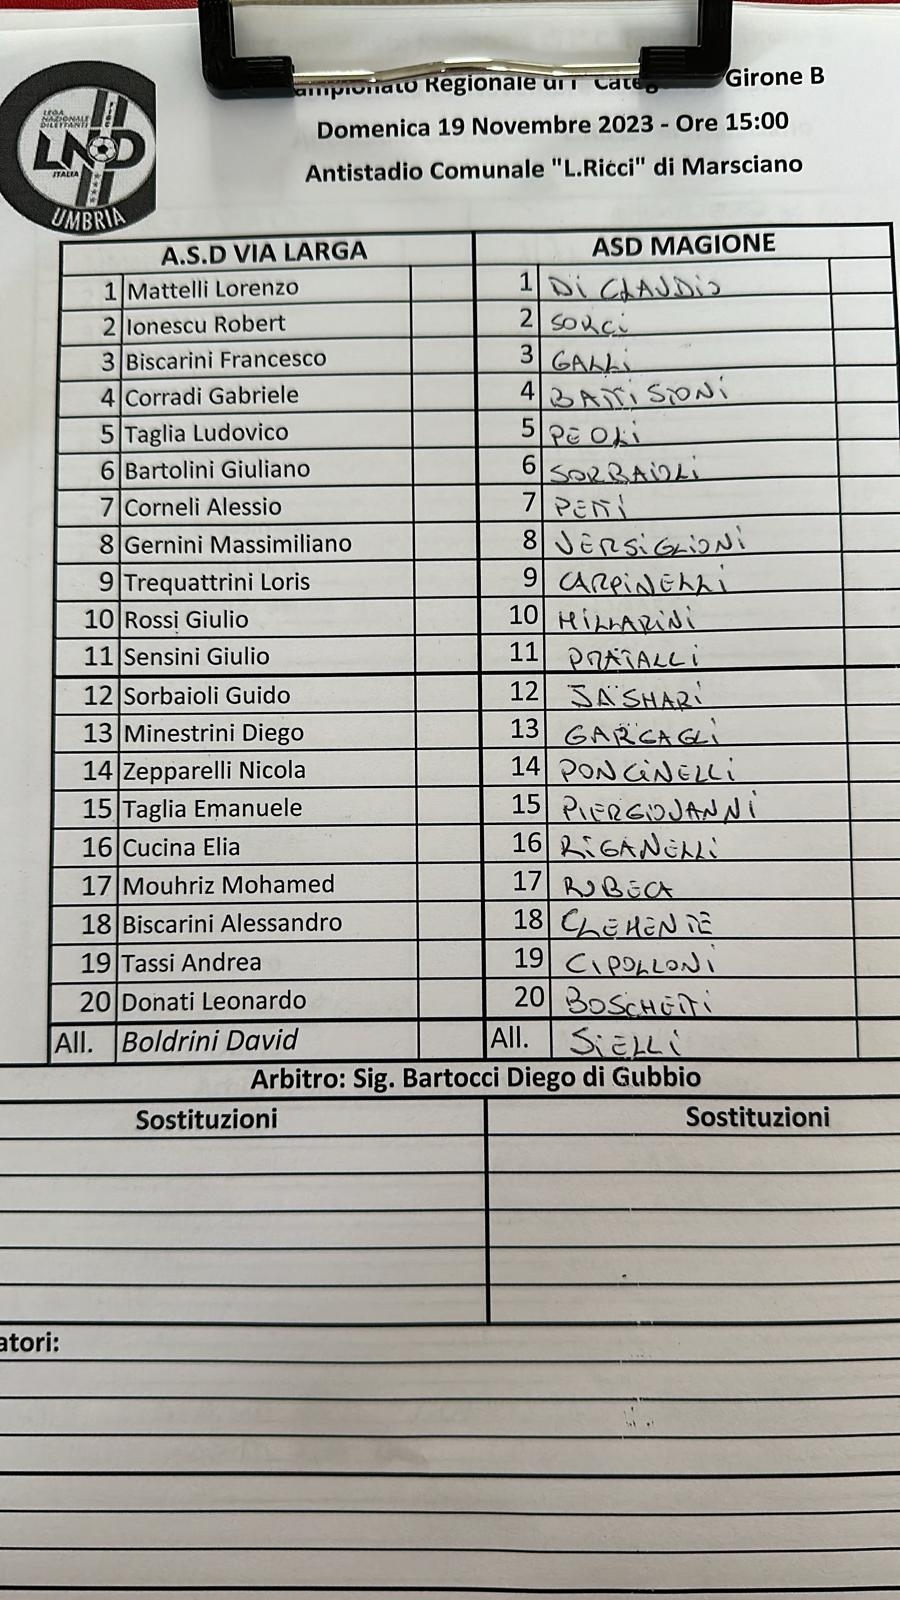 Campionato Regionale di 1^ Categoria Girone B
Domenica 19 Novembre 2023 - Ore 15:00
Antistadio Comunale "L.Ricci" di Marsciano
LEGA
NAZIONALE
DILETTANTI
FIGC
LND
ITALIA
UMBRIA
A.S.D VIA LARGA ASD MAGIONE
1 Mattelli Lorenzo 1 Di CLAUDIO
2 Ionescu Robert 2 SORCi
3 Biscarini Francesco 3 GALLi
4 Corradi Gabriele 4 BATTISTONi
5 Taglia Ludovico 5 PEOLi
6 Bartolini Giuliano 6 SORBAIOLi
7 Corneli Alessio 7 PETTi
8 Gernini Massimiliano 8 VERSiGLIONi
9 Trequattrini Loris 9 CARPINELLi
10 Rossi Giulio 10 MiLLARiNi
11 Sensini Giulio 11 PRATALLi
12 Sorbaioli Guido 12 JASHARi
13 Minestrini Diego 13 GARGAGLi
14 Zepparelli Nicola 14 PONCINELLi
15 Taglia Emanuele 15 PIERGIOVANNi
16 Cucina Elia 16 RiGANELLi
17 Mouhriz Mohamed 17 RUBECA
18 Biscarini Alessandro 18 CLEMENTE
19 Tassi Andrea 19 CIPOLLONi
20 Donati Leonardo 20 BOSCHETTi
All. Boldrini David All. SiELLi
Arbitro: Sig. Bartocci Diego di Gubbio
Sostituzioni Sostituzioni
atori: